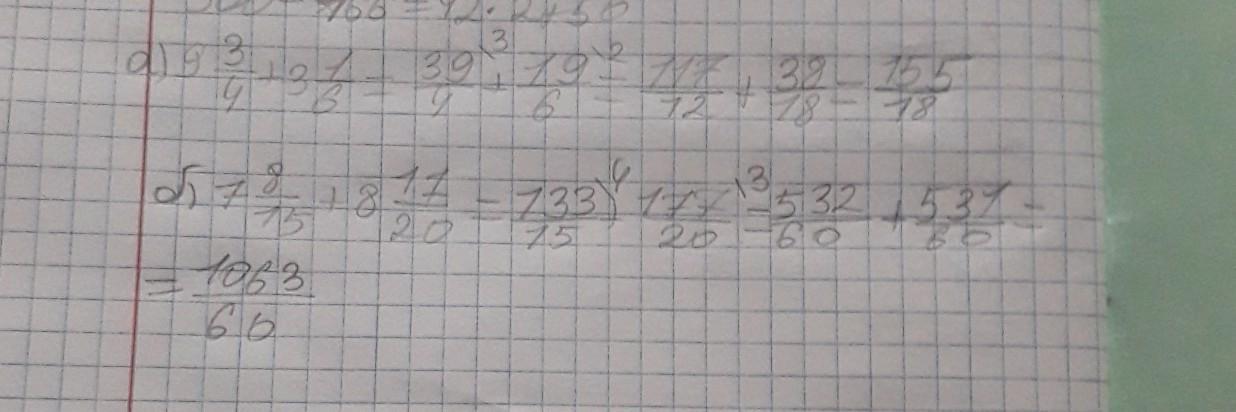 166 = 42 · 2
а) 9 3/4 + 3 1/6 = 39/4 \3 + 19/6 \2 = 117/12 + 38/18 = 155/18
б) 7 8/15 + 8 17/20 = 133/15 \4 + 177/20 \3 = 532/60 + 531/60 =
= 1063/60